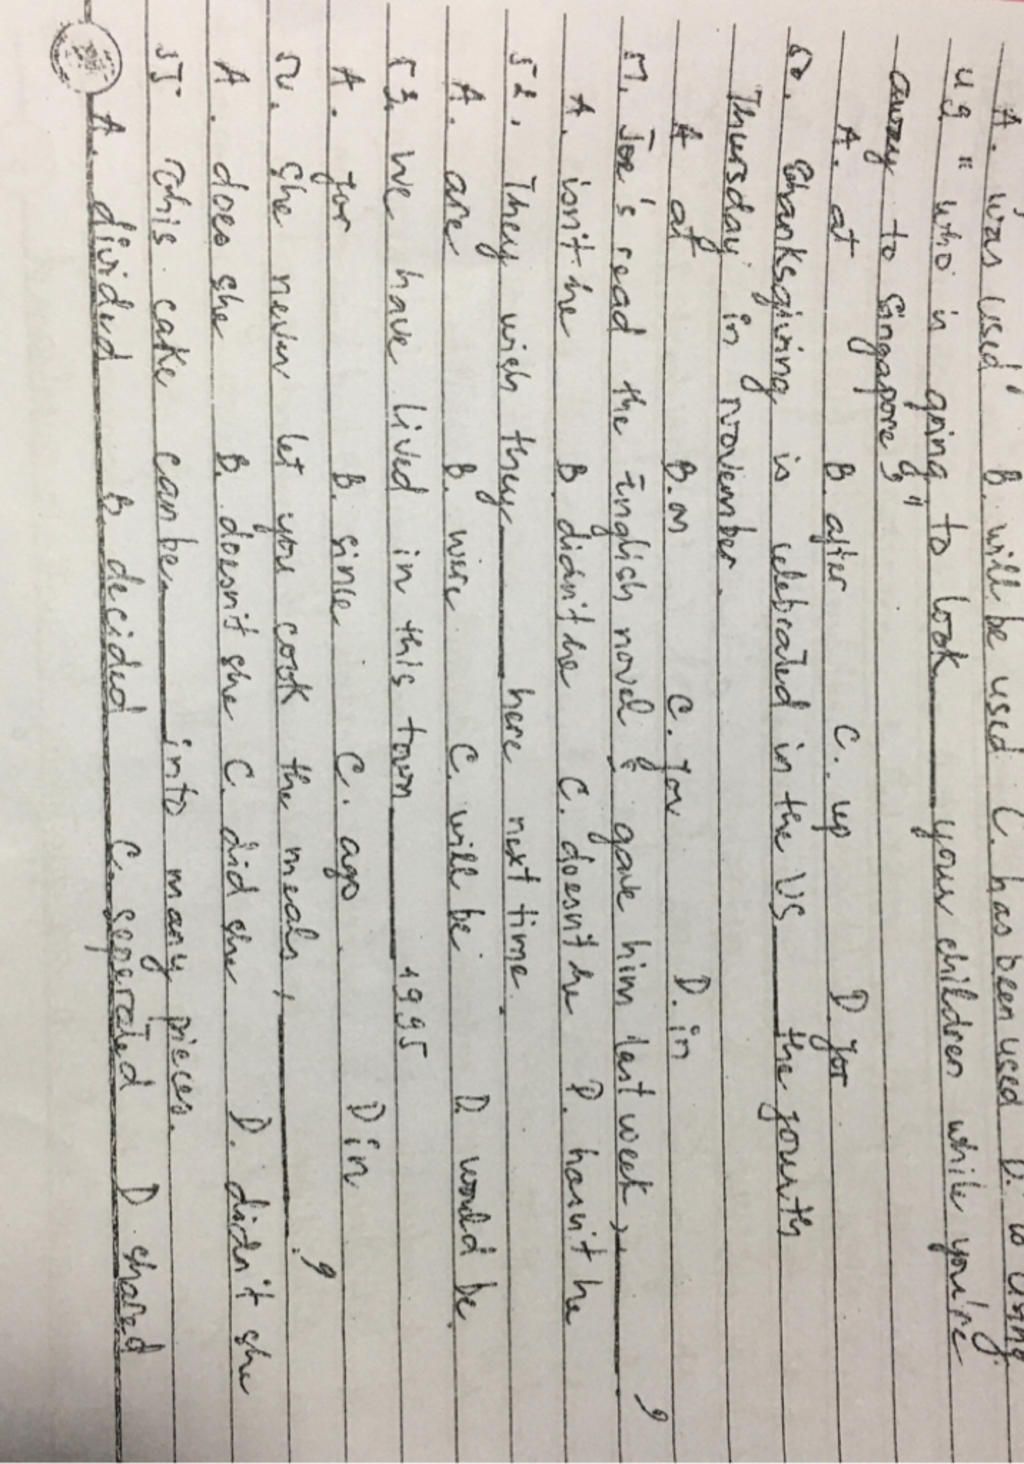 A. was used B. will be used C. has been used D. is using
49 " who is going to look ______ your children while you're
away to singapore ?"
A. at B. after C. up D. for
50. Thanksgiving is celebrated in the US ______ the fourth
Thursday in november.
A at B. on C. for D. in
51. Joe's read the English novel I gave him last week, ______ ?
A. isn't he B. didn't he C. doesn't he D. hasn't he
52. They wish they ______ here next time.
A. are B. were C. will be D. would be.
53. We have lived in this town ______ 1995
A. for B. since C. ago. D in
54. She never let you cook the meals, ______ ?
A. does she B. doesn't she C. did she D. didn't she
55 This cake can be ______ into many pieces.
A. divided B decided C. seperated D shared